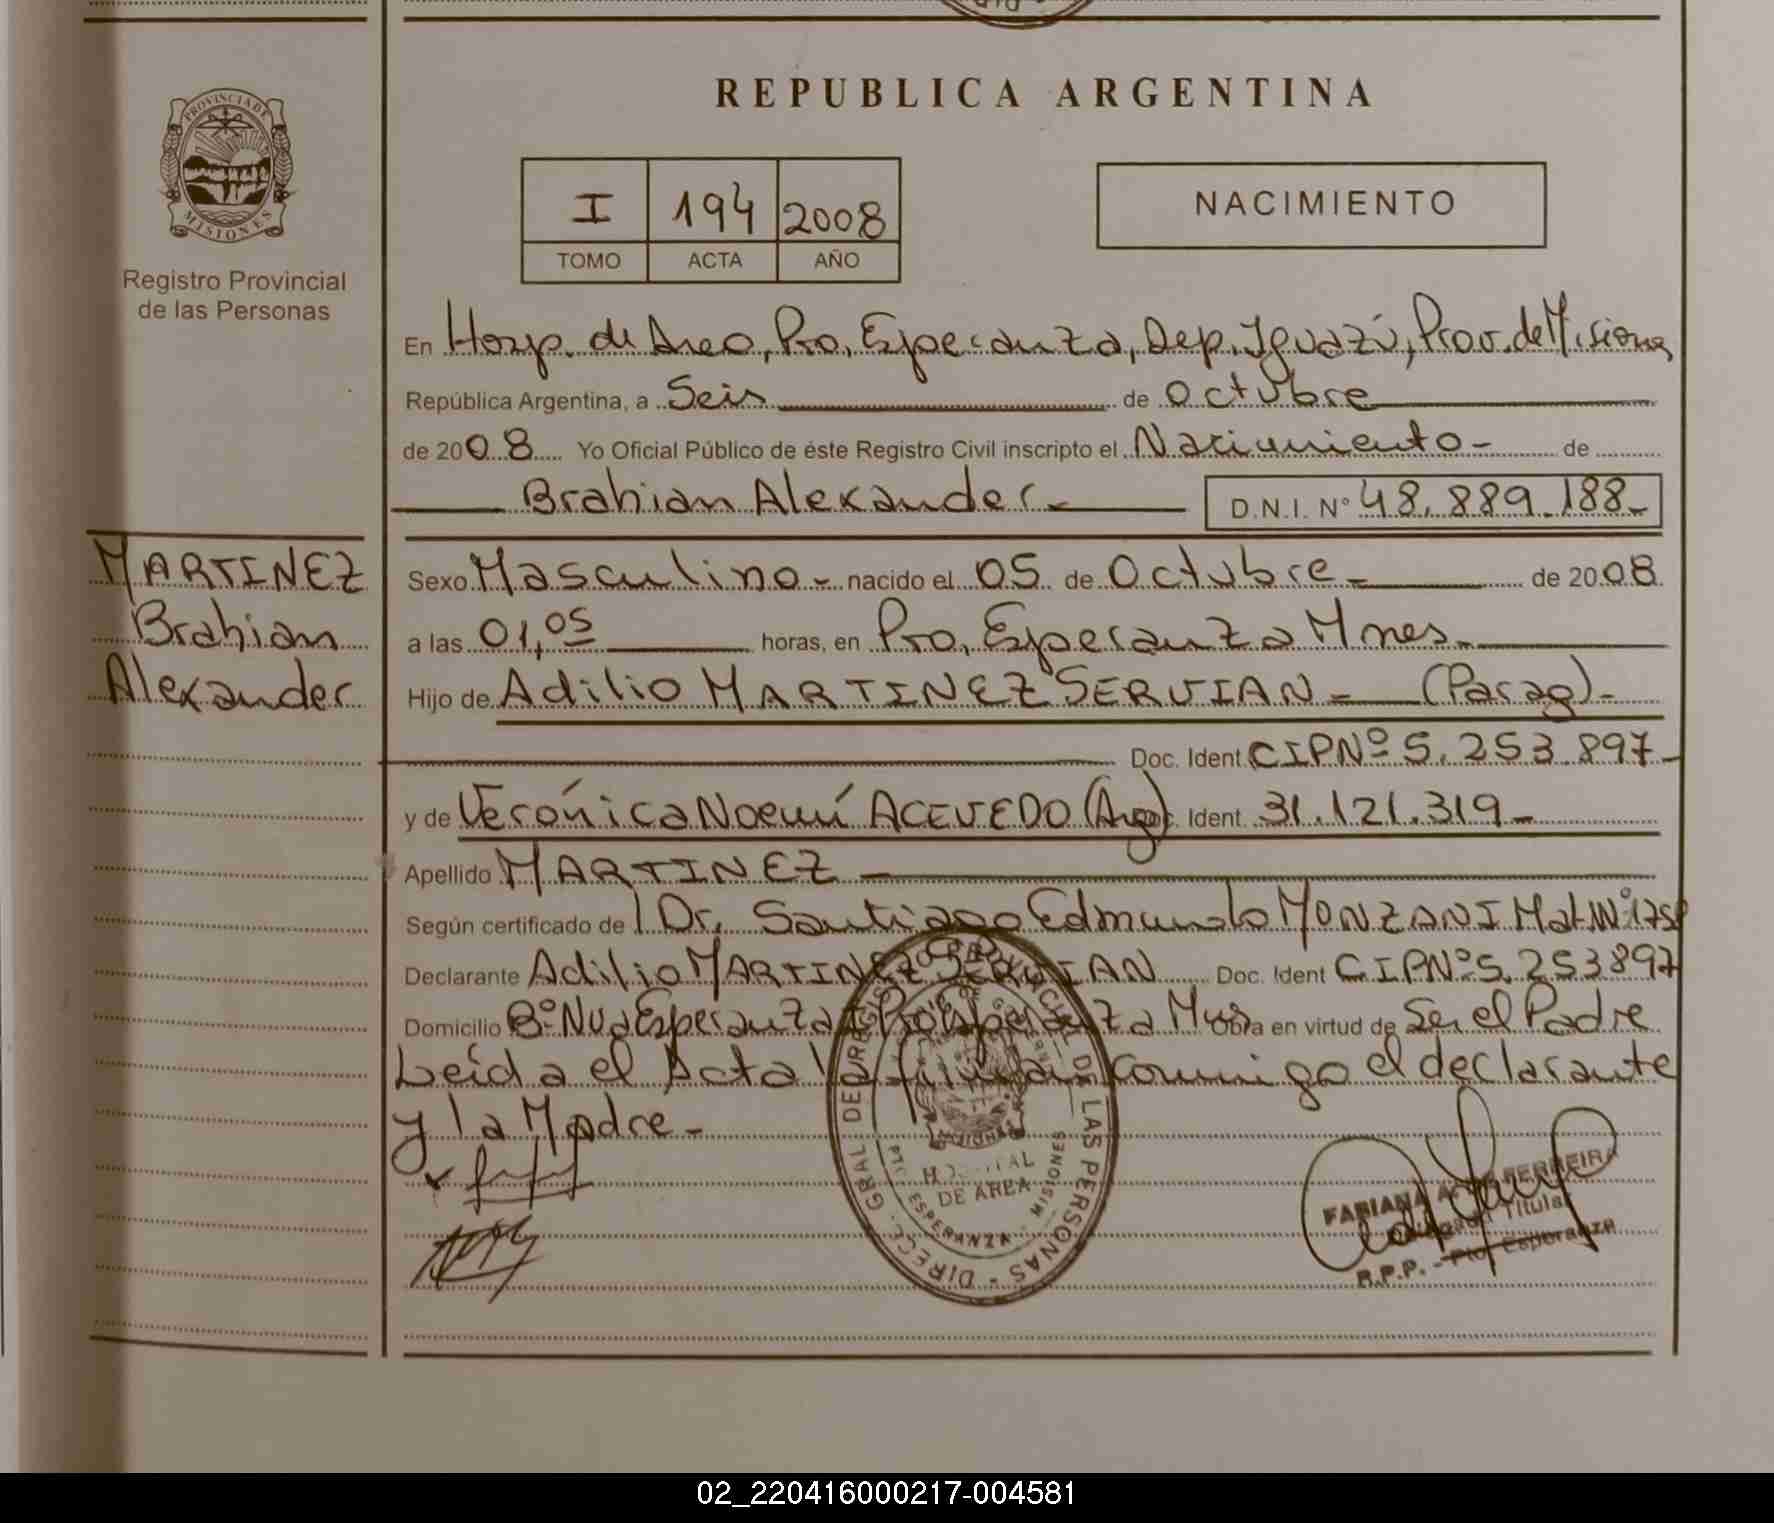 REPUBLICA ARGENTINA
PROVINCIA DE
MISIONES
Registro Provincial
de las Personas
I 194 2008
TOMO ACTA AÑO
NACIMIENTO
En Hosp. de Area, Pto. Esperanza, Dep. Iguazú, Prov. de Misiones
República Argentina, a Seis de Octubre
de 2008 Yo Oficial Público de éste Registro Civil inscripto el Nacimiento - de
Brahian Alexander - D.N.I. Nº 48.889.188-
MARTINEZ
Brahian
Alexander
Sexo Masculino - nacido el 05 de Octubre - de 2008
a las 01,05 horas, en Pto. Esperanza Mnes.
Hijo de Adilio MARTINEZ SERVIAN - (Parag)-
Doc. Ident. CIPNº 5.253.897-
y de Verónica Noemí ACEVEDO (Arg) Doc. Ident. 31.121.319-
Apellido MARTINEZ -
Según certificado de Dr. Santiago Edmundo MONZANI Mat Nº
Declarante Adilio MARTINEZ SERVIAN Doc. Ident CIPNº 5.253897
Domicilio Bº Nva Esperanza Pto Esperanza Mnes Obra en virtud de Ser el Padre
Leída el Acta la firman conmigo el declarante
y la Madre.-
DIRECC. GRAL DEL REGISTRO PROVINCIAL DE LAS PERSONAS
HOSPITAL
DE AREA
ESPERANZA - MISIONES
FABIANA FERREIRA
Titular
R.P.P. - Pto. Esperanza
02_220416000217-004581